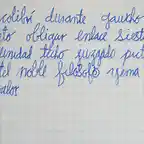 colibrí durante gaucho
eto obligar enlace siest
unidad techo juzgado put
tel noble filósofo yema
valor